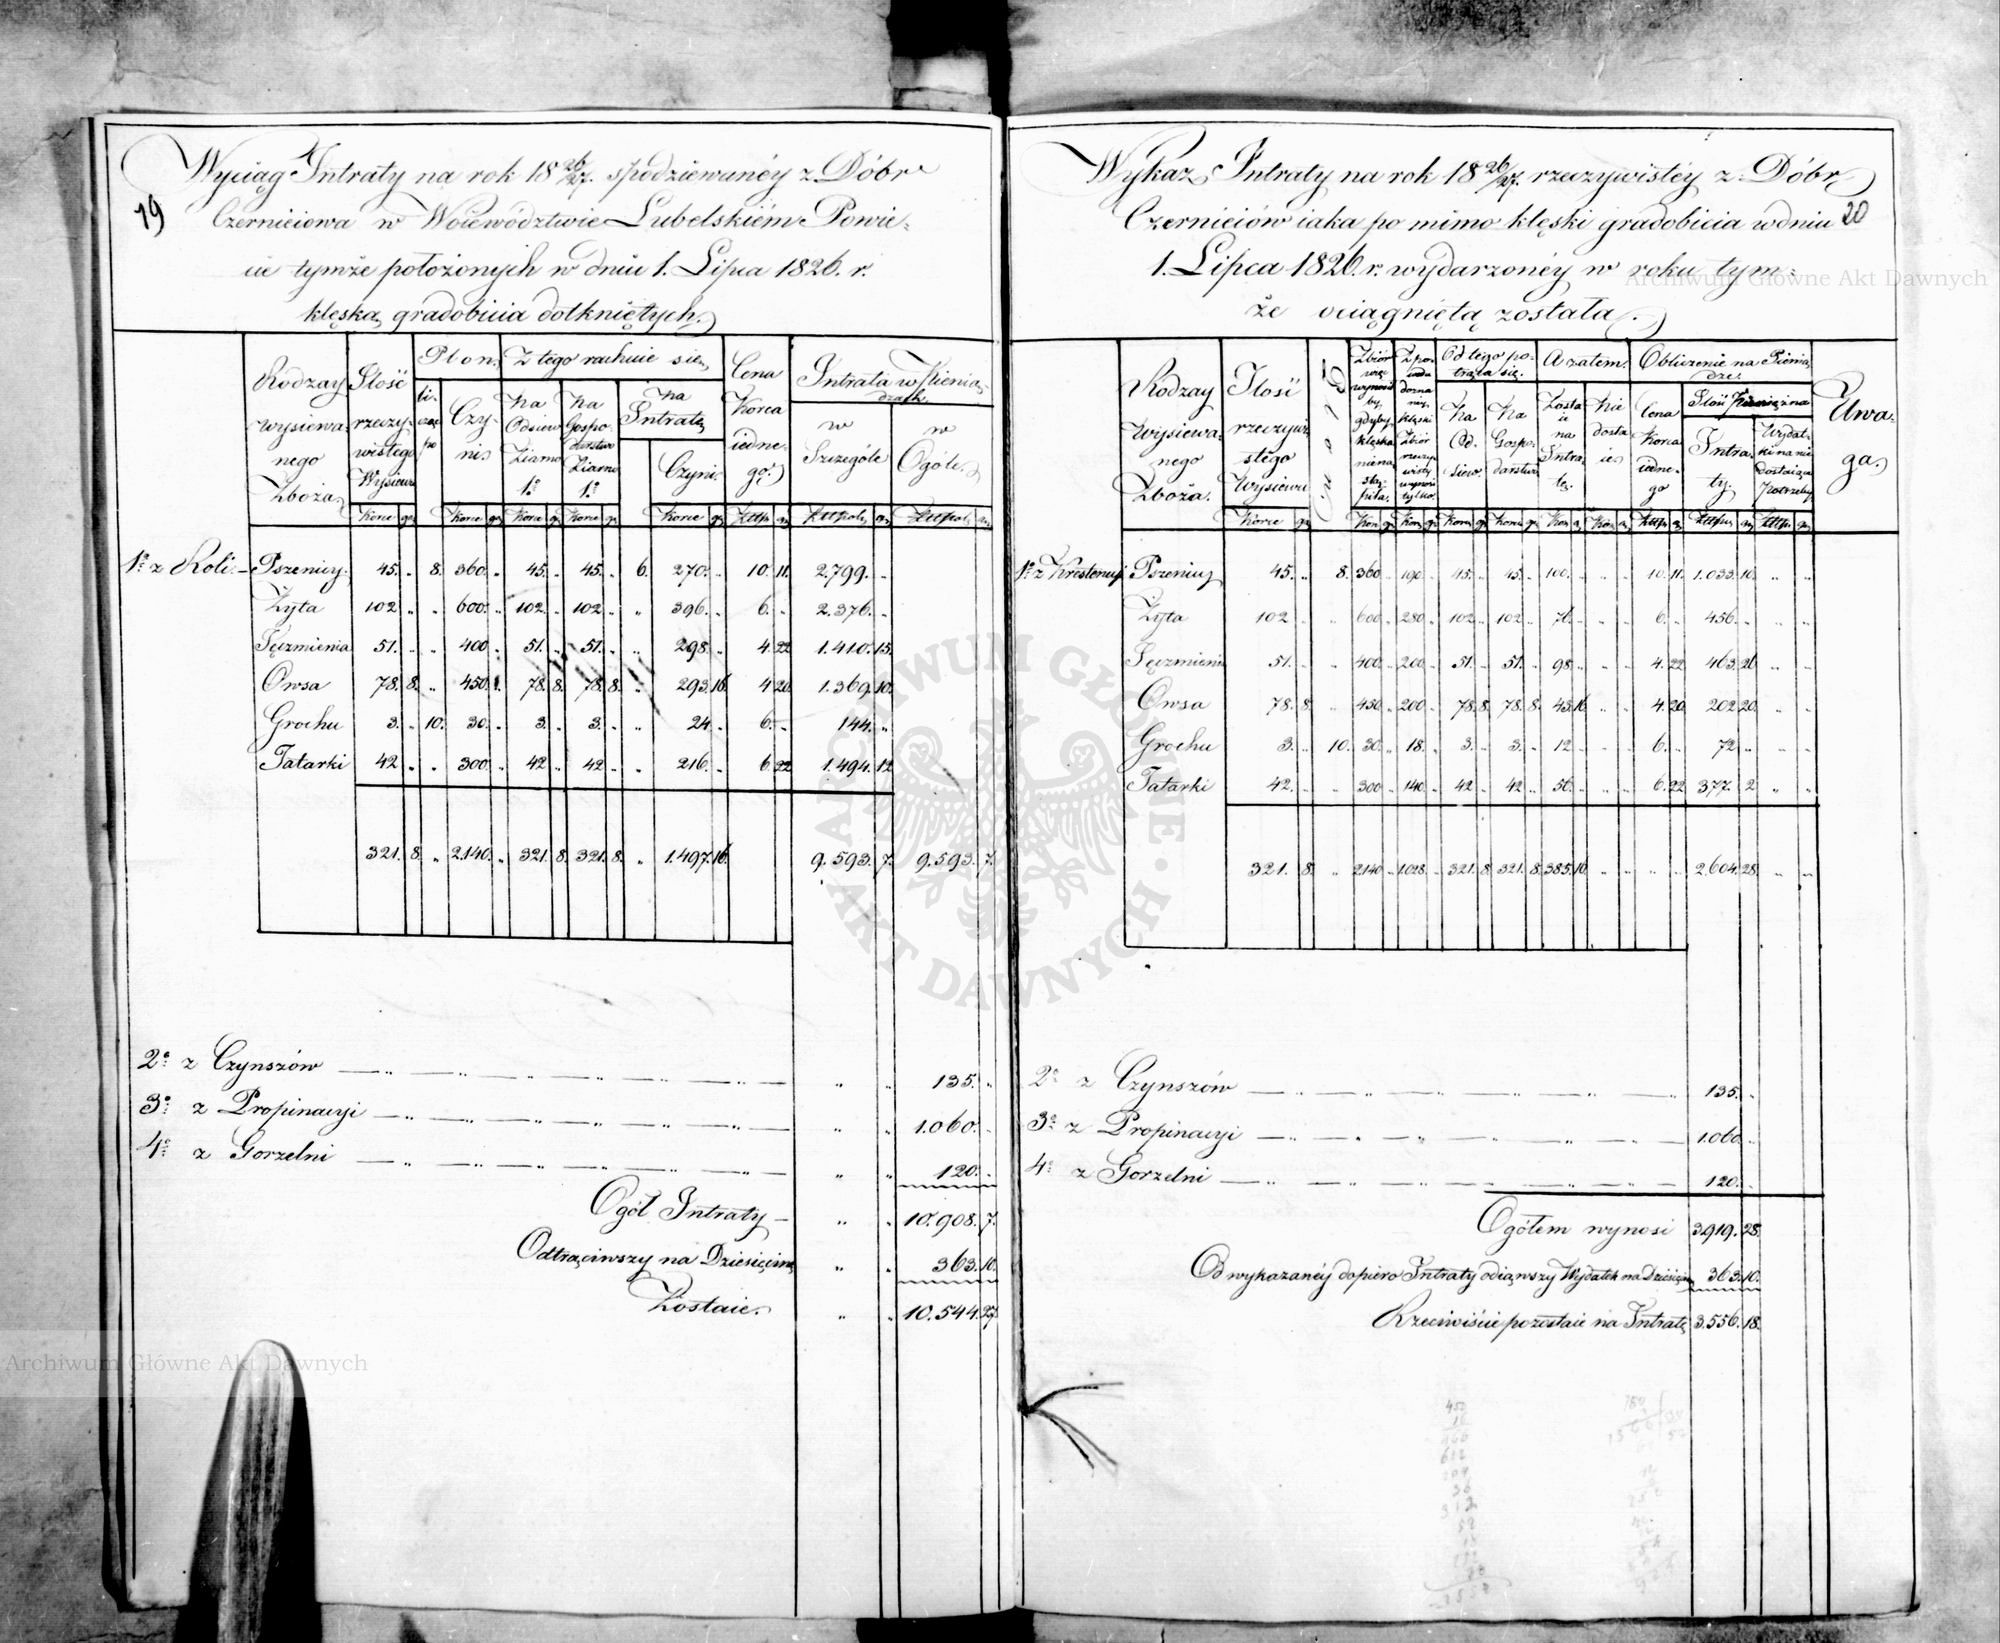 Wyciąg Intraty na rok 18 26/27. spodziewanéy z Dóbr
19
Czerniciowa w Woiewództwie Lubelskiém Powie-
cie tymże położonych w dniu 1. Lipca 1826. r.
klęską gradobicia dotkniętych.
Rodzay wysiewanego Zboża
Ilość rzeczywistego Wysiewu
Plon
Czyni
Z tego rachuie się
Na Odsiew Ziarno 1.
Na Gospodarstwo Ziarno 1.
Na Intratę
Czyni
Cena Korca iednego
Intrata w Pieniądzach
w Szczególe
w Ogóle
Korce gr Korce gr Korce gr Korce gr Korce gr Złtp gr Złtpol gr Złtpol gr
1o z Roli Pszenicy 45. „ 8. 360. „ 45. „ 45. „ 6. 270. „ 10. 11. 2.799. „
Żyta 102 „ „ 600. „ 102. „ 102. „ „ 396. „ 6. „ 2.376. „
Jęczmienia 51. „ „ 400. „ 51. „ 51. „ „ 298. „ 4. 22 1.410. 15.
Owsa 78. 8. „ 450. „ 78. 8. 78. 8. „ 293. 16. 4. 20. 1.369. 10.
Grochu 3. „ 10. 30. „ 3. „ 3. „ „ 24. „ 6. „ 144. „
Tatarki 42. „ „ 300. „ 42. „ 42. „ „ 216. „ 6. 22 1.494. 12
321. 8. „ 2.140. „ 321. 8. 321. 8. „ 1.497. 16. 9.593. 7. 9.593. 7.
2o z Czynszów „ „ 135. „
3o z Propinacyi „ „ 1.060. „
4o z Gorzelni „ „ 120. „
Ogół Intraty „ „ 10.908. 7.
Odtrąciwszy na Dziesięcinę „ „ 363. 10.
Zostaie „ „ 10.544. 27.
Wykaz Intraty na rok 18 26/27. rzeczywistéy z Dóbr
Czerniciów iaka po mimo klęski gradobicia w dniu
20
1. Lipca 1826. r. wydarzonéy w roku tym-
że ociągniętą została.
Rodzay Wysiewanego Zboża
Ilość rzeczywistego Wysiewu
Zbiór więc wynosiłby gdyby klęska nie nastąpiła
Z powodu doznanéy klęski Zbiór rzeczywisty wynosi tylko
Od tego potrąca się
Na Odsiew
Na Gospodarstwo
A zatem
Zostaie na Intratę
Nie dostaie
Obliczenie na Pieniądze
Cena Korca iednego
Ilość Pieniężna
Intraty
Wydatki na niedostaiące Potrzeby
Uwaga
Korce gr Kor gr Kor gr Korce gr Korce gr Kor gr Kor gr Złtp gr Złtp gr Złtp gr
1o z Krestencyi Pszenicy 45. „ 8. 360 „ 190. „ 45. „ 45. „ 100. „ „ „ 10. 11. 1.033. 10. „ „
Żyta 102 „ „ 600. „ 280. „ 102 „ 102 „ 76. „ „ „ 6. „ 456. „ „ „
Jęczmienia 51. „ „ 400. „ 200. „ 51. „ 51. „ 98. „ „ „ 4. 22 463. 26 „ „
Owsa 78. 8. „ 450 „ 200 „ 78. 8. 78. 8. 43. 16 „ „ 4. 20. 202. 20. „ „
Grochu 3. „ 10. 30. „ 18. „ 3. „ 3. „ 12 „ „ „ 6. „ 72 „ „ „
Tatarki 42. „ „ 300 „ 140. „ 42 „ 42 „ 56. „ „ „ 6. 22 377. 2 „ „
321. 8. „ 2140 „ 1.028. „ 321. 8. 321. 8. 385. 16. „ „ „ „ 2.604. 28. „ „
2o z Czynszów 135. „
3o z Propinacyi 1.060 „
4o z Gorzelni 120. „
Ogółem wynosi 3.919. 28.
Od wykazanéy dopiero Intraty odiąwszy Wydatek na Dziesięcinę 363. 10.
Rzeczywiście pozostaie na Intratę 3.556. 18.
Archiwum Główne Akt Dawnych
ARCHIWUM GŁÓWNE AKT DAWNYCH
Archiwum Główne Akt Dawnych